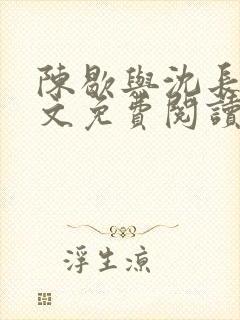 陳歇與沈長
文免費閱讀
浮生涼